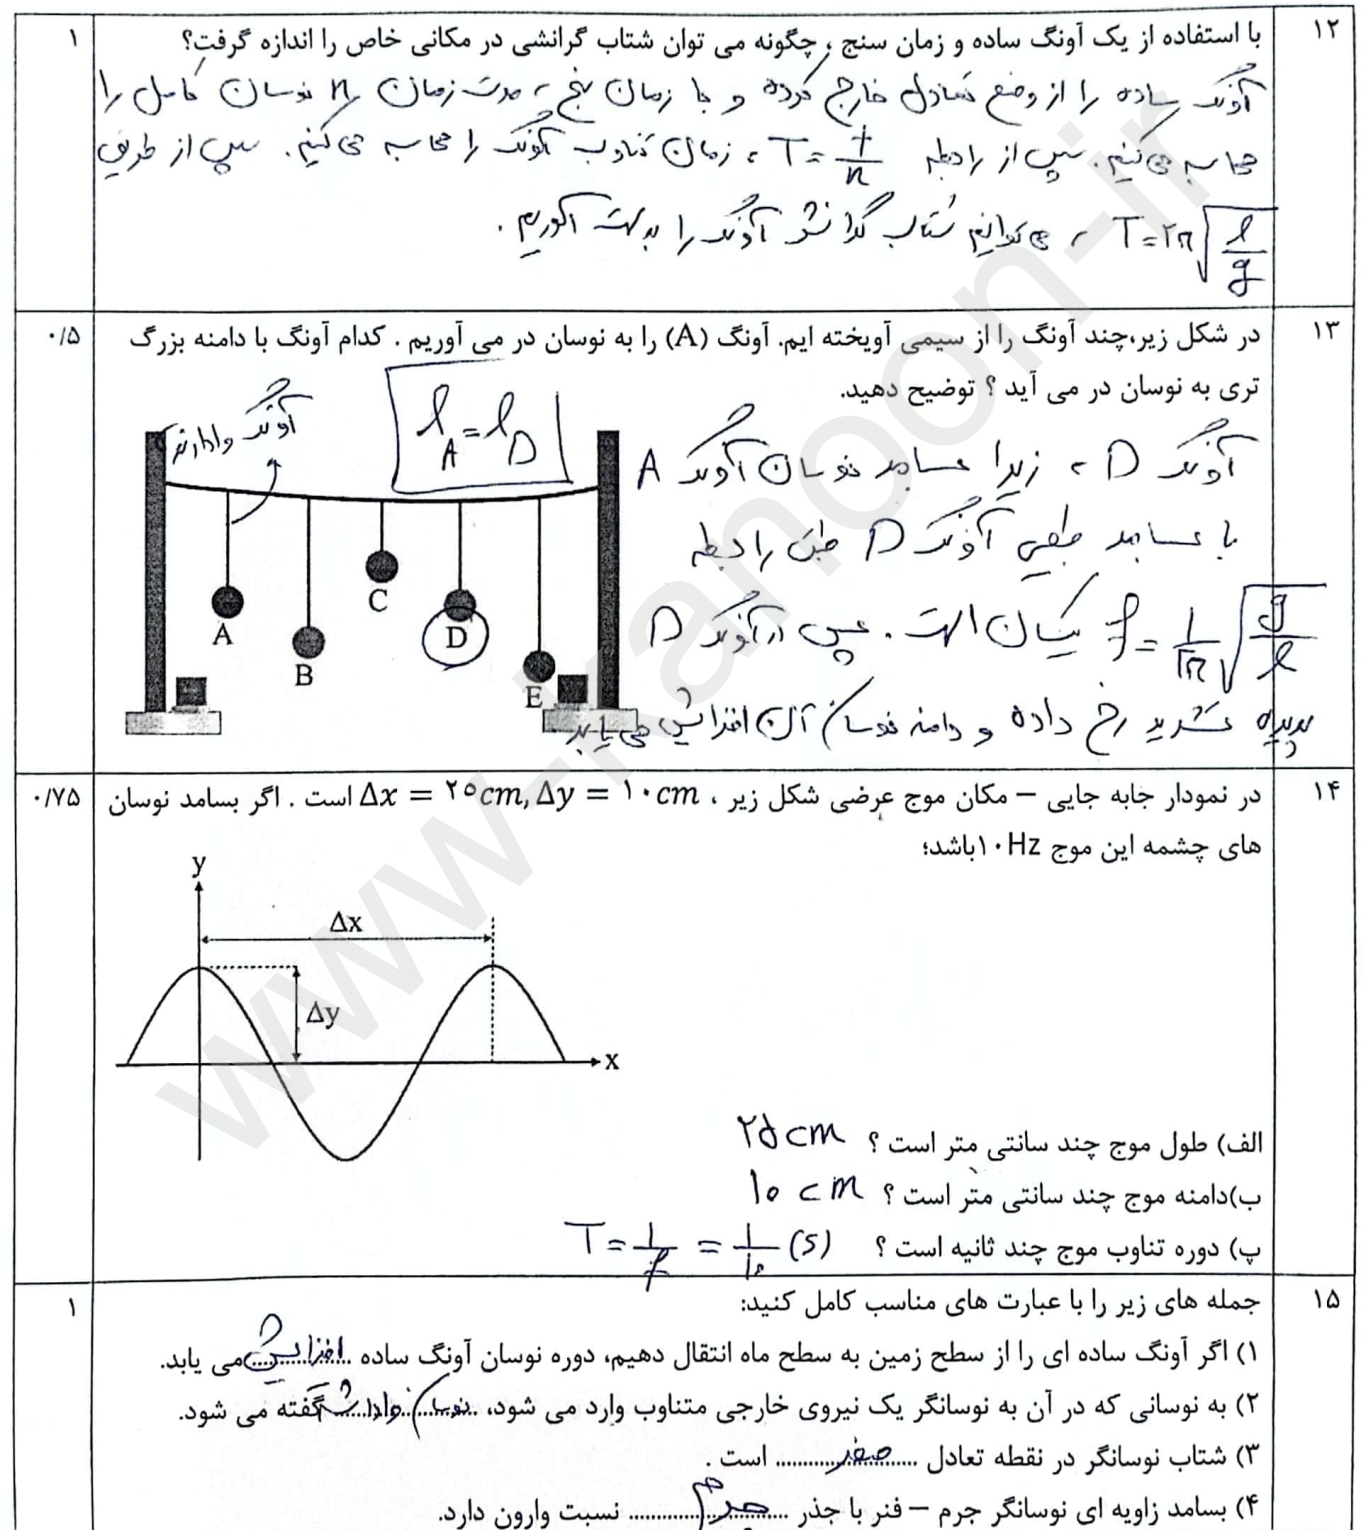 ۱۲
با استفاده از یک آونگ ساده و زمان سنج ، چگونه می توان شتاب گرانشی در مکانی خاص را اندازه گرفت؟
۱
آونگ ساده را از وضع تعادل خارج کرده و با زمان سنج ، مدت زمان n نوسان کامل را
محاسبه می کنیم. سپس از رابطه T = t/n ، زمان تناوب آونگ را محاسبه می کنیم. سپس از طریق
T = ۲π√(l/g) ، می توانیم شتاب گرانش آونگ را بدست آوریم.
۱۳
در شکل زیر،چند آونگ را از سیمی آویخته ایم. آونگ (A) را به نوسان در می آوریم . کدام آونگ با دامنه بزرگ
۰/۵
تری به نوسان در می آید ؟ توضیح دهید.
l_A = l_D
آونگ وادارنده
آونگ D ، زیرا بسامد نوسان آونگ A
با بسامد طبیعی آونگ D طبق رابطه
f = ۱/۲π √(g/l) یکسان است. پس در آونگ D
پدیده تشدید رخ داده و دامنه نوسان آن افزایش می یابد.
A
B
C
D
E
۱۴
در نمودار جابه جایی – مکان موج عرضی شکل زیر ، Δx = ۲۵cm, Δy = ۱۰cm است . اگر بسامد نوسان
۰/۷۵
های چشمه این موج ۱۰Hz باشد؛
y
Δx
Δy
x
الف) طول موج چند سانتی متر است ؟ ۲۵ cm
ب)دامنه موج چند سانتی متر است ؟ ۱۰ cm
پ) دوره تناوب موج چند ثانیه است ؟ T = ۱/f = ۱/۱۰ (s)
۱۵
جمله های زیر را با عبارت های مناسب کامل کنید:
۱
۱) اگر آونگ ساده ای را از سطح زمین به سطح ماه انتقال دهیم، دوره نوسان آونگ ساده افزایش می یابد.
۲) به نوسانی که در آن به نوسانگر یک نیروی خارجی متناوب وارد می شود، نوسان واداشته گفته می شود.
۳) شتاب نوسانگر در نقطه تعادل صفر است .
۴) بسامد زاویه ای نوسانگر جرم – فنر با جذر جرم نسبت وارون دارد.
www-kanoon-ir